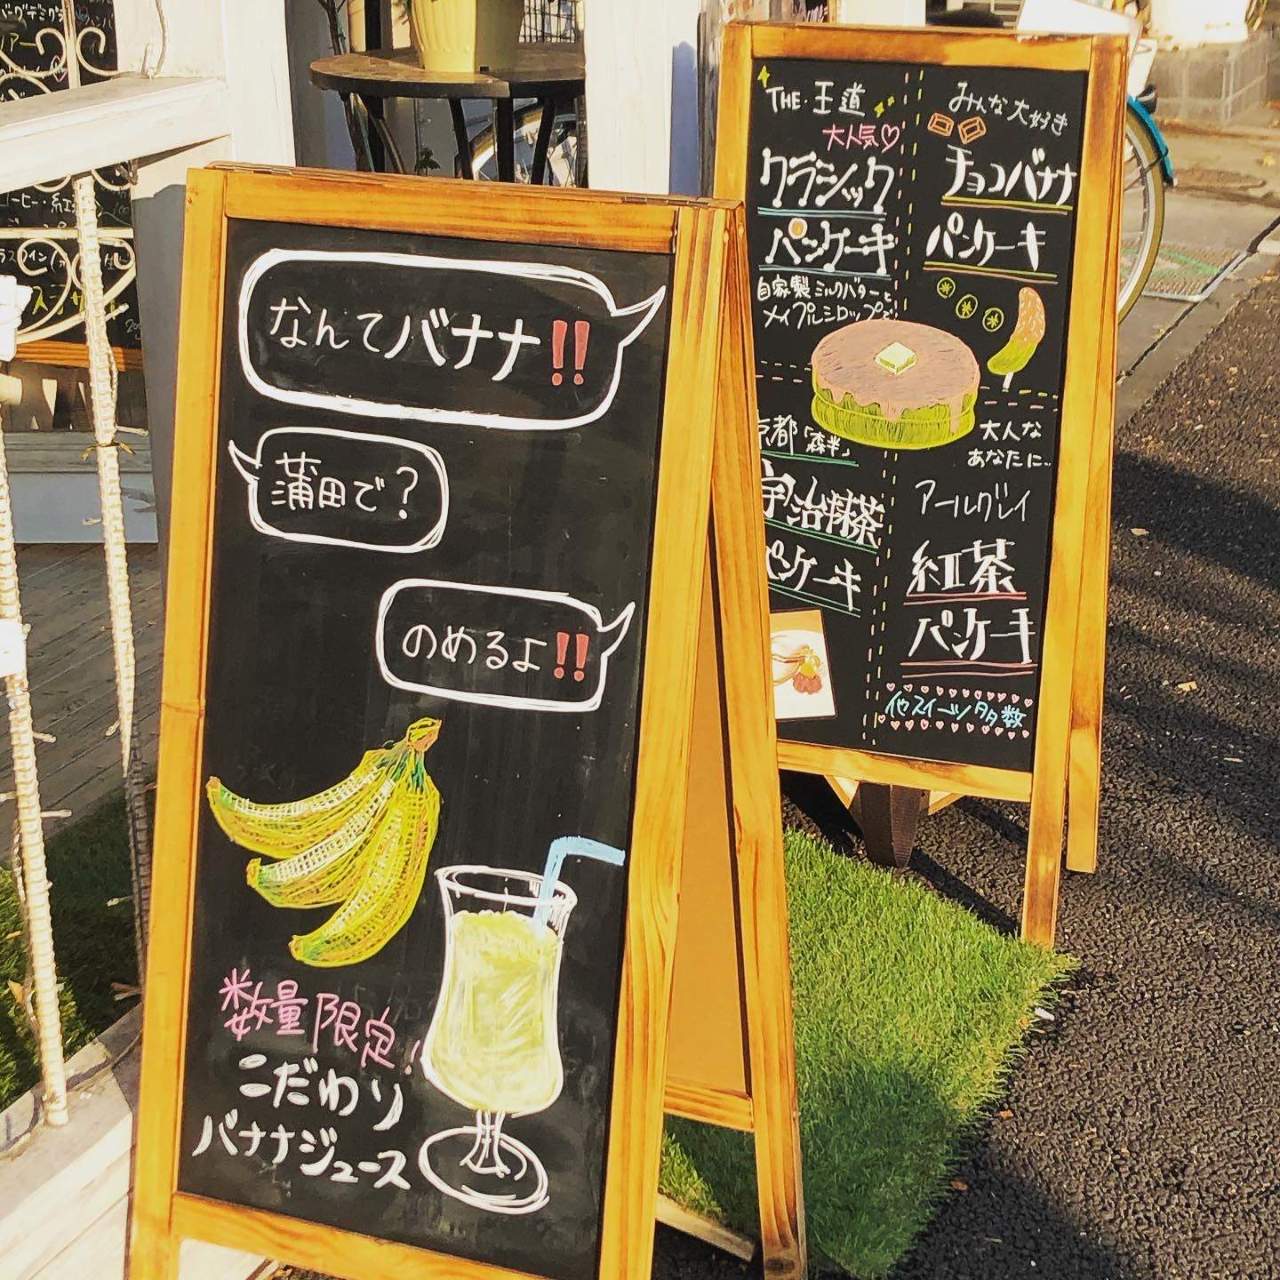 なんてバナナ!!
蒲田で?
のめるよ!!
数量限定!
こだわり
バナナジュース
THE・王道
大人気♡
クラシック
パンケーキ
自家製ミルクバターと
メイプルシロップで
みんな大好き
チョコバナナ
パンケーキ
京都「森半」
宇治抹茶
パンケーキ
大人な
あなたに…
アールグレイ
紅茶
パンケーキ
他スイーツ多数